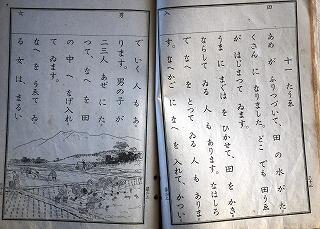 十一 たうゑ
あめ が ふりつづいて、田 の 水 が た
くさん に なりました。どこ でも 田うゑ
が はじまつて ゐます。
うま に まぐは を ひかせて、田 を かき
ならして ゐる 人 も あります。なはしろ
で なへ を とつて ゐる 人 も ありま
す。なへかご に なへ を 入れて、かつい
で いく 人 も あ
ります。男 の 子 が
二三人 あぜ に た
つて、なへ を 田
の 中 へ なげ入れ
て ゐます。
なへ を うゑて ゐ
る 女 は、まるい